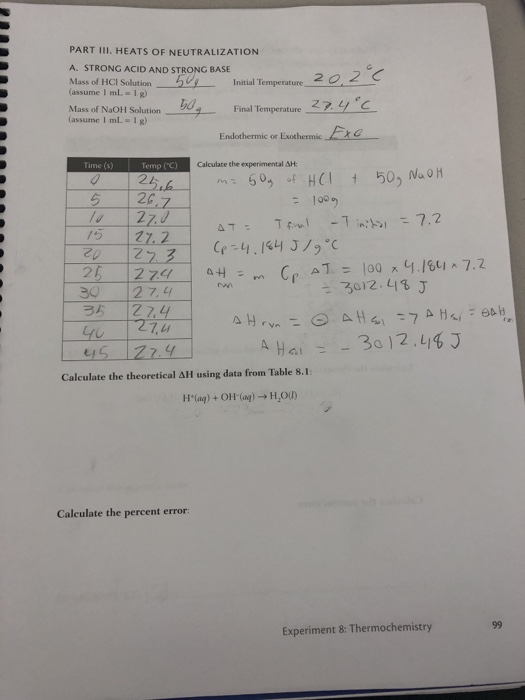 PART III. HEATS OF NEUTRALIZATION
A. STRONG ACID AND STRONG BASE
Mass of HCl Solution 50g Initial Temperature 20.2°C
(assume 1 mL = 1 g)
Mass of NaOH Solution 50g Final Temperature 27.4°C
(assume 1 mL = 1 g)
Endothermic or Exothermic Exo
Time (s) Temp (°C) Calculate the experimental ΔH:
0 25.6 m = 50g of HCl + 50g NaOH
5 26.7 = 100g
10 27.0 ΔT = Tfinal - Tinitial = 7.2
15 27.2
20 27.3 Cp = 4.184 J/g°C
25 27.4 ΔH = m Cp ΔT = 100 × 4.184 × 7.2
30 27.4 = 3012.48 J
35 27.4 ΔHrxn = ⊖ ΔHsol => ΔHsol = ⊖ΔHrxn
40 27.4
45 27.4 ΔHsol = - 3012.48 J
Calculate the theoretical ΔH using data from Table 8.1:
H⁺(aq) + OH⁻(aq) → H₂O(l)
Calculate the percent error:
Experiment 8: Thermochemistry 99